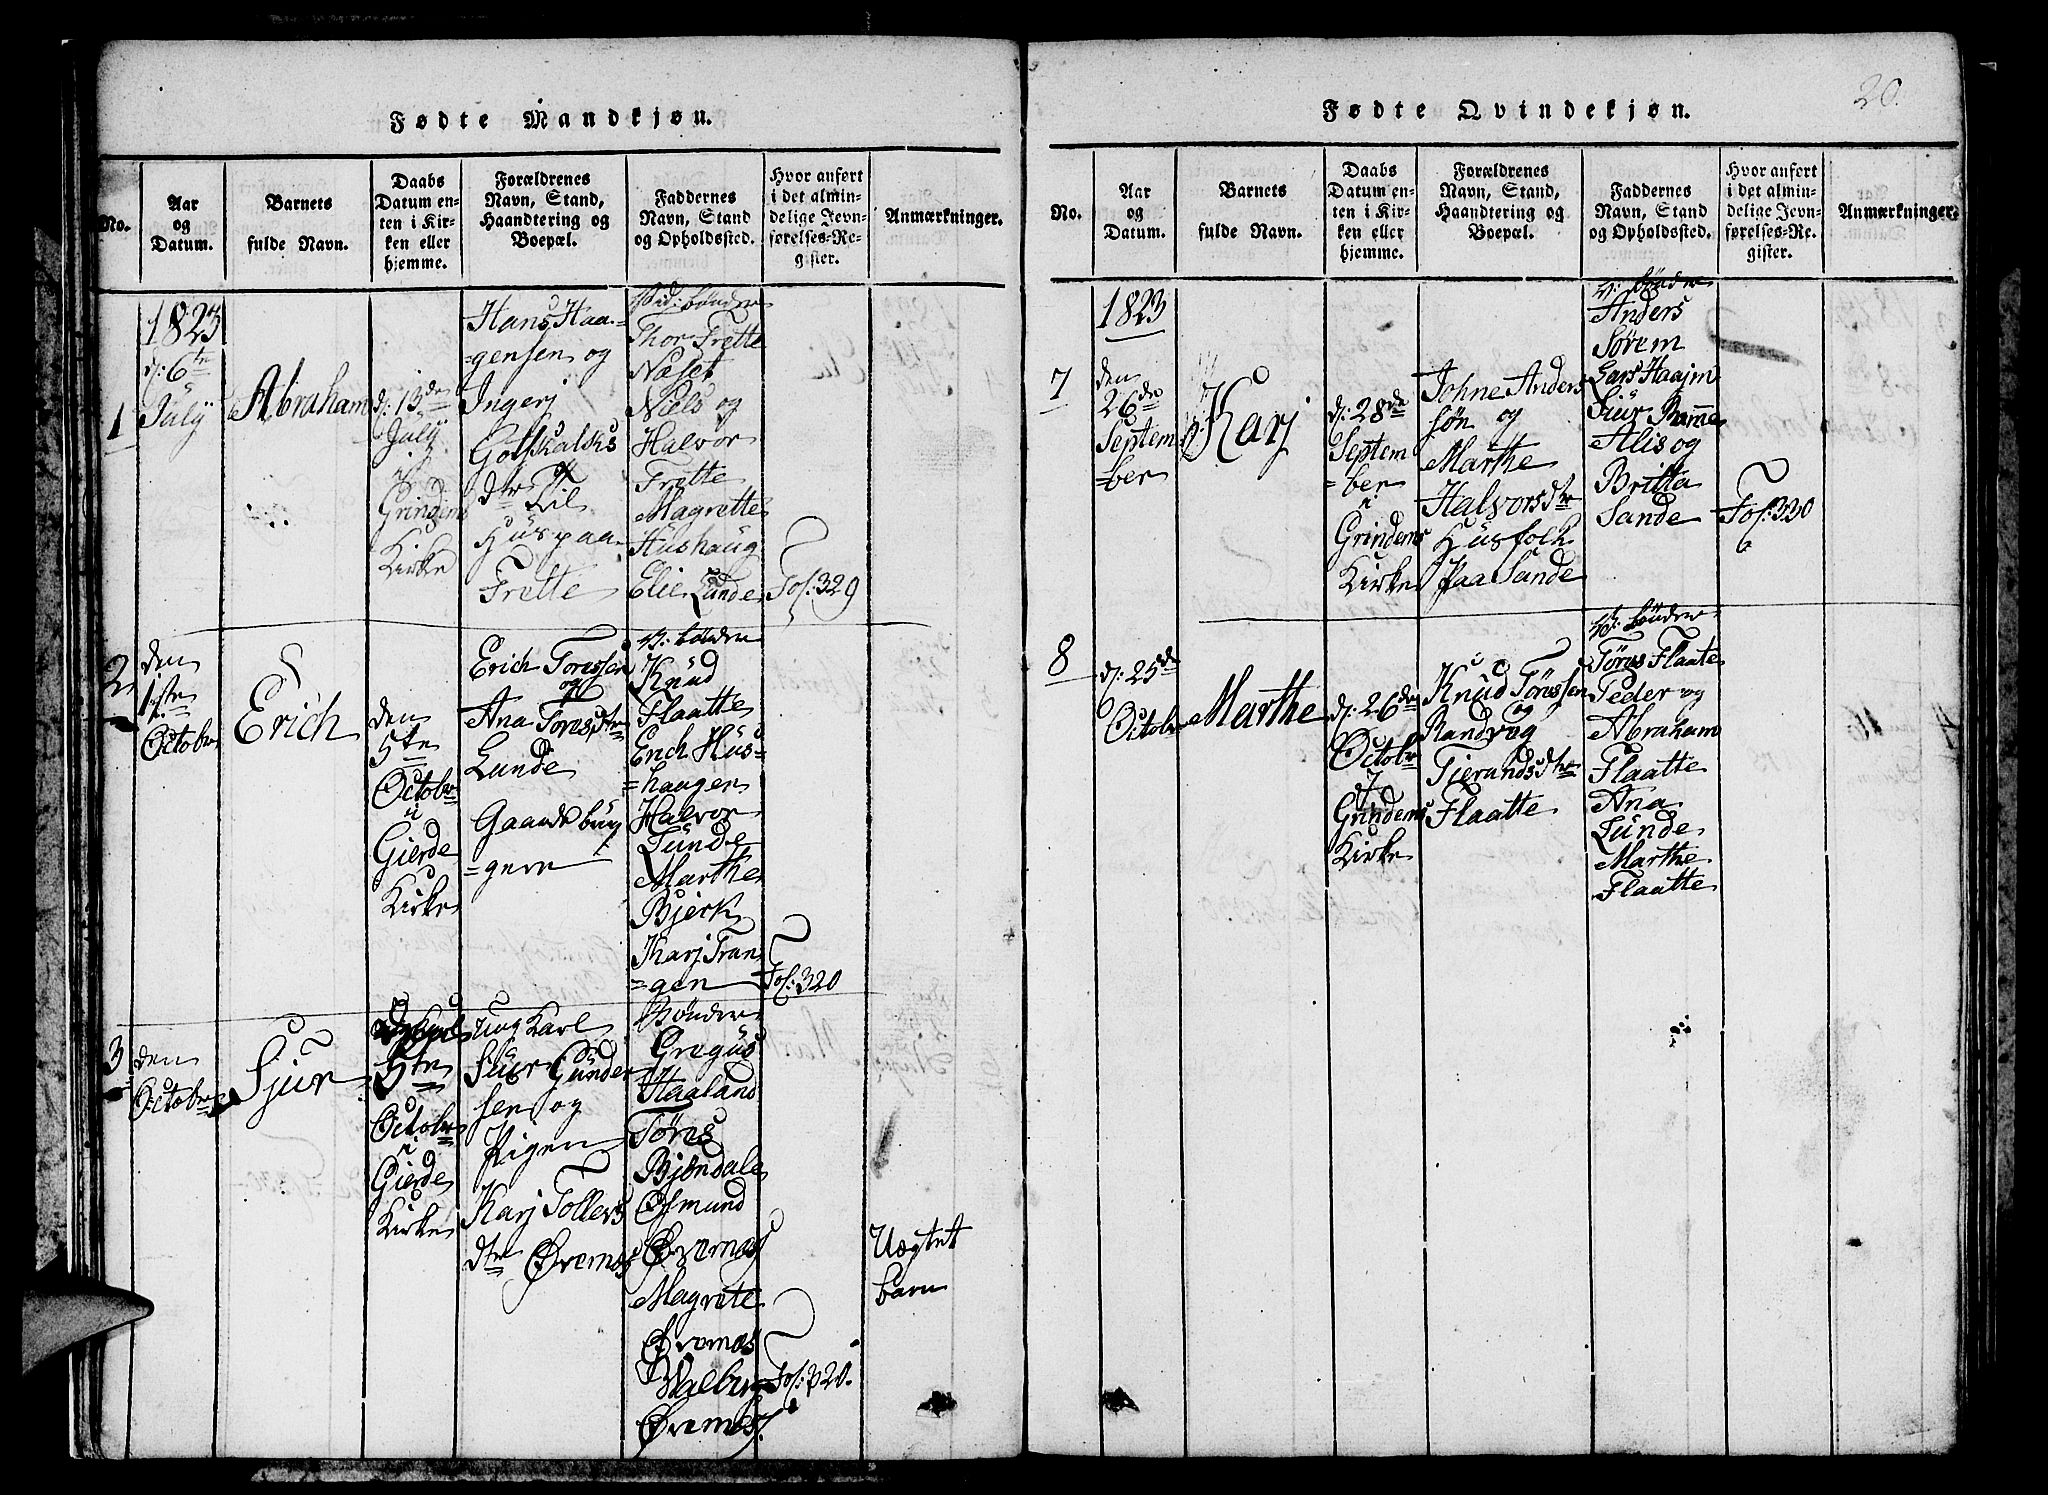 Fødte Mandkjøn.
No.
Aar
og
Datum.
Barnets
fulde Navn.
Daabs
Datum en-
ten i Kir-
ken eller
hjemme.
Forældrenes
Navn, Stand,
Haandtering og
Boepæl.
Faddernes
Navn, Stand
og Opholdssted.
Hvor anført
i det almin-
delige Jevn-
førelses-Re-
gister.
Anmærkninger.
1
1823
d: 6te
July
Abraham
d: 13de
July
i
Grindens
Kirke
Hans Haa-
gensen og
Ingerj
Gotskalks
dtr Til
Huus paa
Frette
bönder
Thor Frette
Næset
Niels og
Halvor
Frette
Magrette
Hushaug
Elie Lunde
Fol: 329
2
den
1ste
Octobr
Erich
den
5te
Octobr
i
Gierde
Kirke
Erich Toressen
og
Ana Toresdtr
Lunde
Gaardsbrug
gere
bönder
Knud
Flaatte
Erich Hus-
haugen
Halvor
Lunde
Marthe
Bjerk
Karj Tran
gen
Fol: 320
3
den
Octobr
Sjur
5te
Octobr
i
Gierde
Kirke
ung Karl
Siur Gunder
sen og
Pigen
Karj Tollevs
dtr Øvernes
Bönder
Gregus
Haaland
Töres
Bjöndale
Osmund
Øvernes
Magrete
Øvernes
Walbur
Øvernes
Fol: 320.
Uægtet
barn
20.
Fødte Qvindekjøn.
No.
Aar
og
Datum.
Barnets
fulde Navn.
Daabs
Datum en-
ten i Kir-
ken eller
hjemme.
Forældrenes
Navn, Stand,
Haandtering og
Boepæl.
Faddernes
Navn, Stand
og Opholdssted.
Hvor anført
i det almin-
delige Jevn-
førelses-Re-
gister.
Anmærkninger.
7
1823
den
26de
Septem
ber
Karj
d: 28de
Septem
ber
i
Grindens
Kirke
Johne Anders
søn og
Marthe
Halvorsdtr
Husfolk
paa Sande
bönder
Anders
Sørem
Lars Haajm
Siur Ramme
Alis og
Britta
Sande
Fol: 330
8
d: 25de
Octobr
Marthe
d: 26de
Octobr
i
Grindens
Kirke
Knud Töressen
og
Randvug
Tjerandsdtr
Flaatte
bönder
Töres Flaate
Peder og
Abraham
Flaatte
Ana
Lunde
Marthe
Flaatte